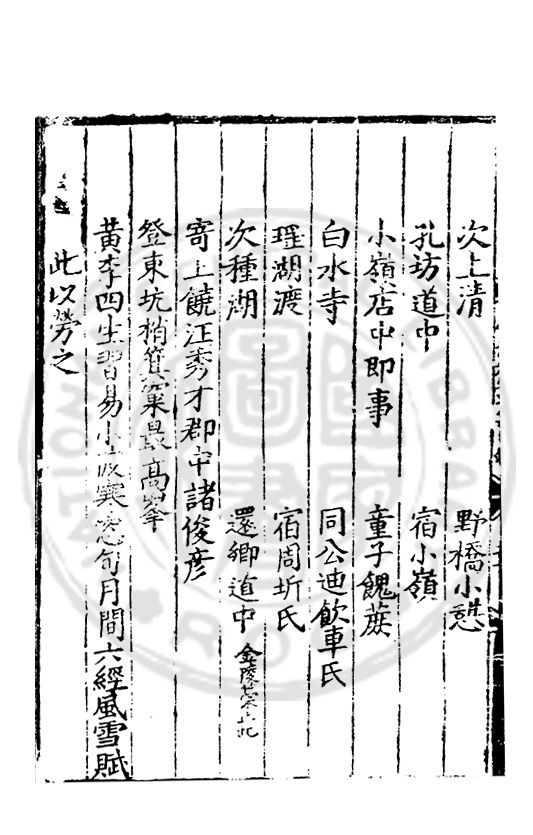 次上清 野橋小憩
孔坊道中 宿小嶺
小嶺店中即事 童子餽蔗
白水寺 同公迪飲車氏
瑶湖渡 宿周圻氏
次種湖 還鄉道中
寄上饒汪秀才郡中諸俊彦
登東坑梢箕窠最高峯
黄李四生習易小陂寒窓旬月間六經風雪賦
此以勞之